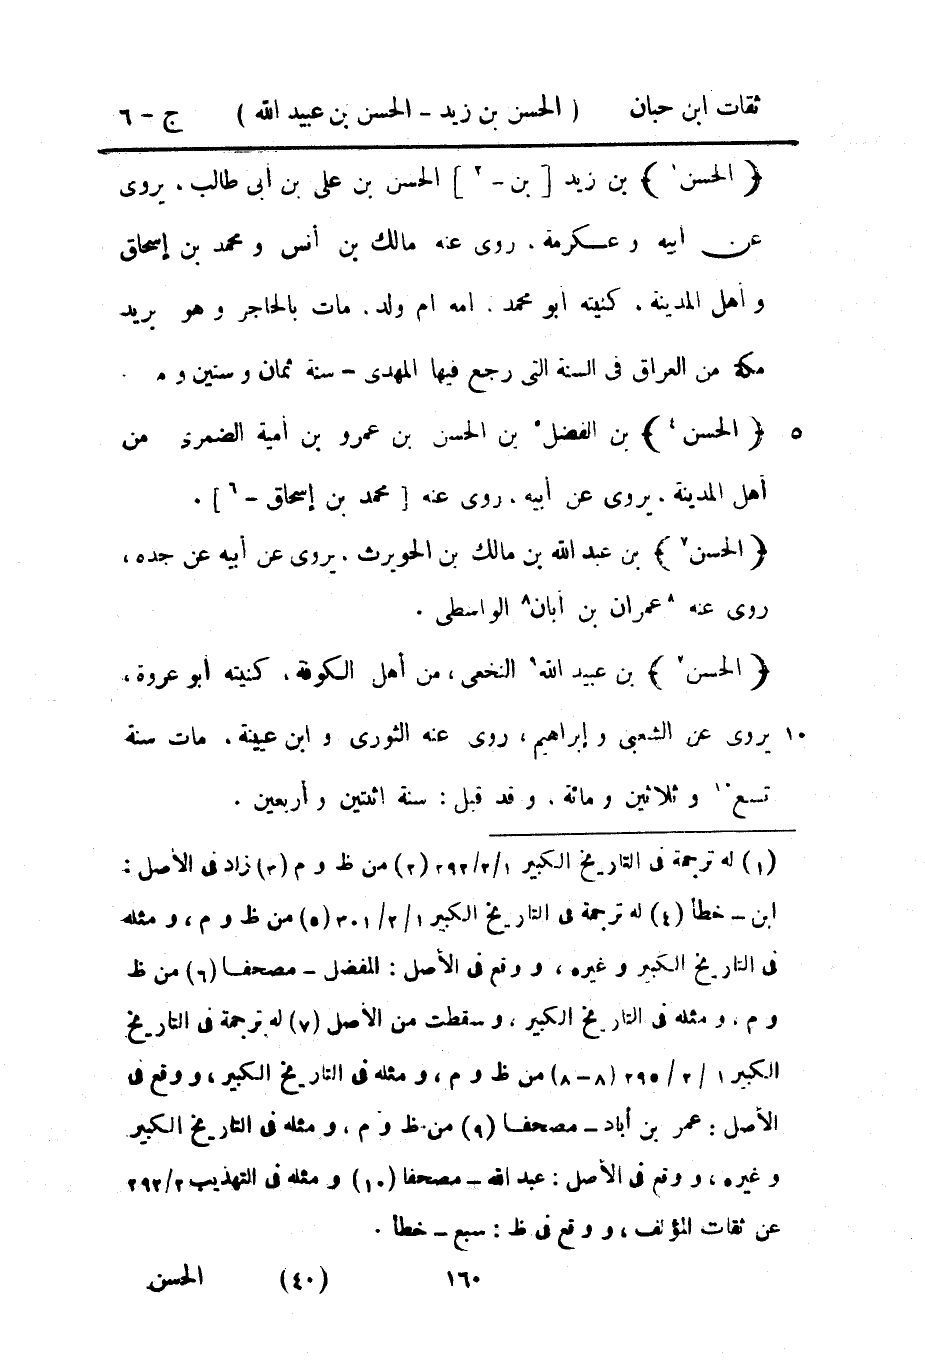 ثقات ابن حبان ( الحسن بن زيد – الحسن بن عبيد الله ) ج – ٦
﴿ الحسن١ ﴾ بن زيد [ بن – ٢ ] الحسن بن على بن أبى طالب . يروى
عن أبيه و عكرمة . روى عنه مالك بن أنس و محمد بن إسحاق
و أهل المدينة . كنيته ابو محمد . امه ام ولد . مات بالحاجر و هو يريد
مكة من العراق فى السنة التى رجع فيها المهدى – سنة ثمان و ستين و م .
٥ ﴿ الحسن٤ ﴾ بن الفضل٥ بن الحسن بن عمرو بن أمية الضمرى من
أهل المدينة . يروى عن أبيه . روى عنه [ محمد بن إسحاق – ٦ ] .
﴿ الحسن٧ ﴾ بن عبد الله بن مالك بن الحويرث . يروى عن أبيه عن جده ،
روى عنه ٨عمران بن أبان٨ الواسطى .
﴿ الحسن٧ ﴾ بن عبيد الله٩ النخعى ، من أهل الكوفة . كنيته أبو عروة ،
١٠ يروى عن الشعبى و إبراهيم ، روى عنه الثورى و ابن عيينة . مات سنة
تسع١٠ و ثلاثين و مائة . و قد قيل : سنة اثنتين و أربعين .
(١) له ترجمة فى التاريخ الكبير ٢٩٢/٢/١ (٢) من ظ و م (٣) زاد فى الأصل :
ابن – خطأ (٤) له ترجمة فى التاريخ الكبير ٣٠١/٢/١ (٥) من ظ و م ، و مثله
فى التاريخ الكبير و غيره ، و وقع فى الأصل : المفضل – مصحفا (٦) من ظ
و م . و مثله فى التاريخ الكبير ، و سقطت من الأصل (٧) له ترجمة فى التاريخ
الكبير ١ / ٢ / ٢٩٥ (٨–٨) من ظ و م ، و مثله فى التاريخ الكبير ، و وقع فى
الأصل : عمر بن أباد – مصحفا (٩) من ظ و م ، و مثله فى التاريخ الكبير
و غيره ، و وقع فى الأصل : عبد الله – مصحفا (١٠) و مثله فى التهذيب ٢٩٢/٢
عن ثقات المؤلف ، و وقع فى ظ : سبع – خطأ .
١٦٠ (٤٠) الحسن